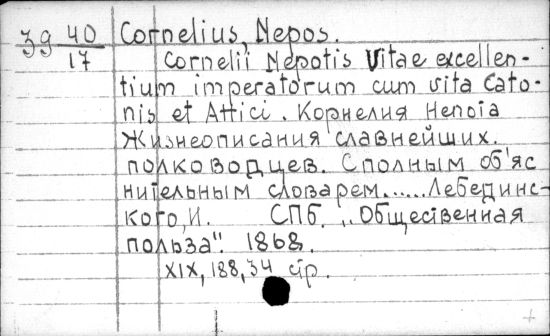 39 40/17 Cornelius, Nepos.
Cornelii Nepotis Vitae excellen-
tium imperatorum cum vita Cato-
nis et Attici. Корнелия Непота
Жизнеописания славнейших.
полководцев. С полным об'яс
нительным словарем......Лебединс-
кого, И. СПб. „Общественная
польза". 1868.
XIX, 188, 34 стр.